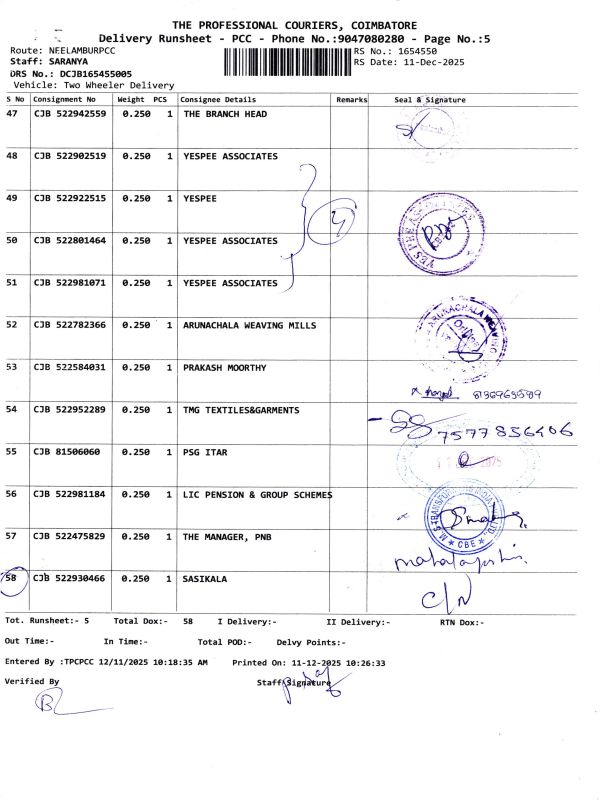 THE PROFESSIONAL COURIERS, COIMBATORE
Delivery Runsheet - PCC - Phone No.:9047080280 - Page No.:5
Route: NEELAMBURPCC
RS No.: 1654550
Staff: SARANYA
RS Date: 11-Dec-2025
DRS No.: DCJB165455005
Vehicle: Two Wheeler Delivery
S No Consignment No Weight PCS Consignee Details Remarks Seal & Signature
47 CJB 522942559 0.250 1 THE BRANCH HEAD
48 CJB 522902519 0.250 1 YESPEE ASSOCIATES
49 CJB 522922515 0.250 1 YESPEE
4
50 CJB 522801464 0.250 1 YESPEE ASSOCIATES
51 CJB 522981071 0.250 1 YESPEE ASSOCIATES
52 CJB 522782366 0.250 1 ARUNACHALA WEAVING MILLS
ARUNACHALA WEAVING
53 CJB 522584031 0.250 1 PRAKASH MOORTHY
54 CJB 522952289 0.250 1 TMG TEXTILES&GARMENTS
7577856406
55 CJB 81506060 0.250 1 PSG ITAR
2025
56 CJB 522981184 0.250 1 LIC PENSION & GROUP SCHEMES
CBE
57 CJB 522475829 0.250 1 THE MANAGER, PNB
58 CJB 522930466 0.250 1 SASIKALA
C/N
Tot. Runsheet:- 5 Total Dox:- 58 I Delivery:- II Delivery:- RTN Dox:-
Out Time:- In Time:- Total POD:- Delvy Points:-
Entered By :TPCPCC 12/11/2025 10:18:35 AM Printed On: 11-12-2025 10:26:33
Verified By Staff Signature